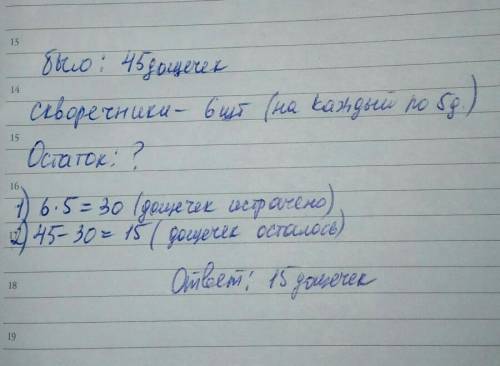 13
Было: 45 дощечек
14
Скворечники - 6 шт (на каждый по 5д.)
15
Остаток: ?
16
1) 6·5=30 (дощечек истрачено)
2) 45-30=15 (дощечек осталось)
18
Ответ: 15 дощечек
19